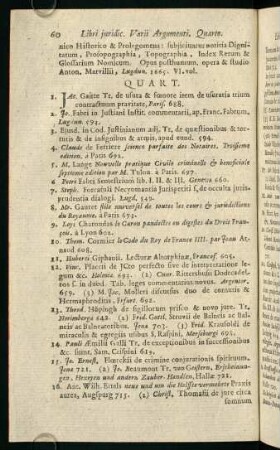 60 Libri juridic. Varii Argumenti, Quarte.
nico Historico & Prolegomena: subjiciuntur notitia Digni-
tatum, Prosopographia, Topographia, Index Rerum &
Glossarium Nomicum. Opus posthumum, opera & studio
Anton. Marvillii, Lugdun. 1665. VI. vol.
QUART.
1. Jac. Gaitte Tr. de usura & fœnore item de usuraria trium
contractuum pravitate, Paris. 688.
2. Jo. Fabri in Justiani Instit. commentarii, ap. Franc. Fabrum,
Lugdun. 593.
3. Blond. in Cod. Justinianum adj. Tr. de quæstionibus & tor-
mentis & de insignibus & armis, apud eund. 594.
4. Claude de Ferriere science parfaite des Notaires, Troisieme
edition, à Paris 692.
5. M. Lange Nouvelle pratique Civile criminelle & beneficiale
septieme edition par M. Tulon à Paris 697.
6. Petri Fabri Semestrium lib. I. II. & III. Geneva 660.
7. Steph. Forcatuli Necyomantia Jurisperiti f. de occulta juris-
prudentia dialogi. Lugd. 549.
8. Mr. Gauret stile universel de toutes les cours & jurisdictions
du Royaume. à Paris 673.
9. Leys Charondas de Caron pandectes ou digestes du Droit Fran-
çois, à Lyon 602.
10. Thom. Cormier le Code du Roy de France IIII. par Jean Ar-
naud 608.
11. Huberti Giphanii, Lecturæ Altorphinæ, Francof. 605.
12. Vinc. Placcii de JCto perfecto sive de interpretatione le-
gum &c. Holmiæ 693. (2) Chær. Rittershusii Dodecadel-
tos f. in duod. Tab. leges commentarius novus. Argentor.
659. (3) M. Jac. Molleri discursus duo de cornutis &
Hermaphroditis, Erfurt. 692.
13. Theod. Höpingk de sigillorum prisco & novo jure. Tr.
Norimberga 642. (2) Frid. Gotof. Struvii de Balneis ac Bal-
neis ac Balneatoribus. Jena 703. (3) Frid. Kraufoldi de
miraculis & egregiis usibus S. Rasioni. Martisburg 691.
14. Pauli Æmilii Galli Tr. de exceptionibus in successionibus
&c. sumt. Sam. Crispini 619.
15. Jo. Ernest. Floercki de crimine conjurationis spirituum.
Jena 721. (2) Jo. Beaumont Tr. von Geistern, Erscheinun-
gen, Hexerey und andern Zauber-Handlen, Hallæ 721.
16. Ant. Wilh. Ertels neu und um die Helffte vermehrte Praxis
aurea, Augspurg 715. (2) Christ. Thomasii de jure circa
somnum